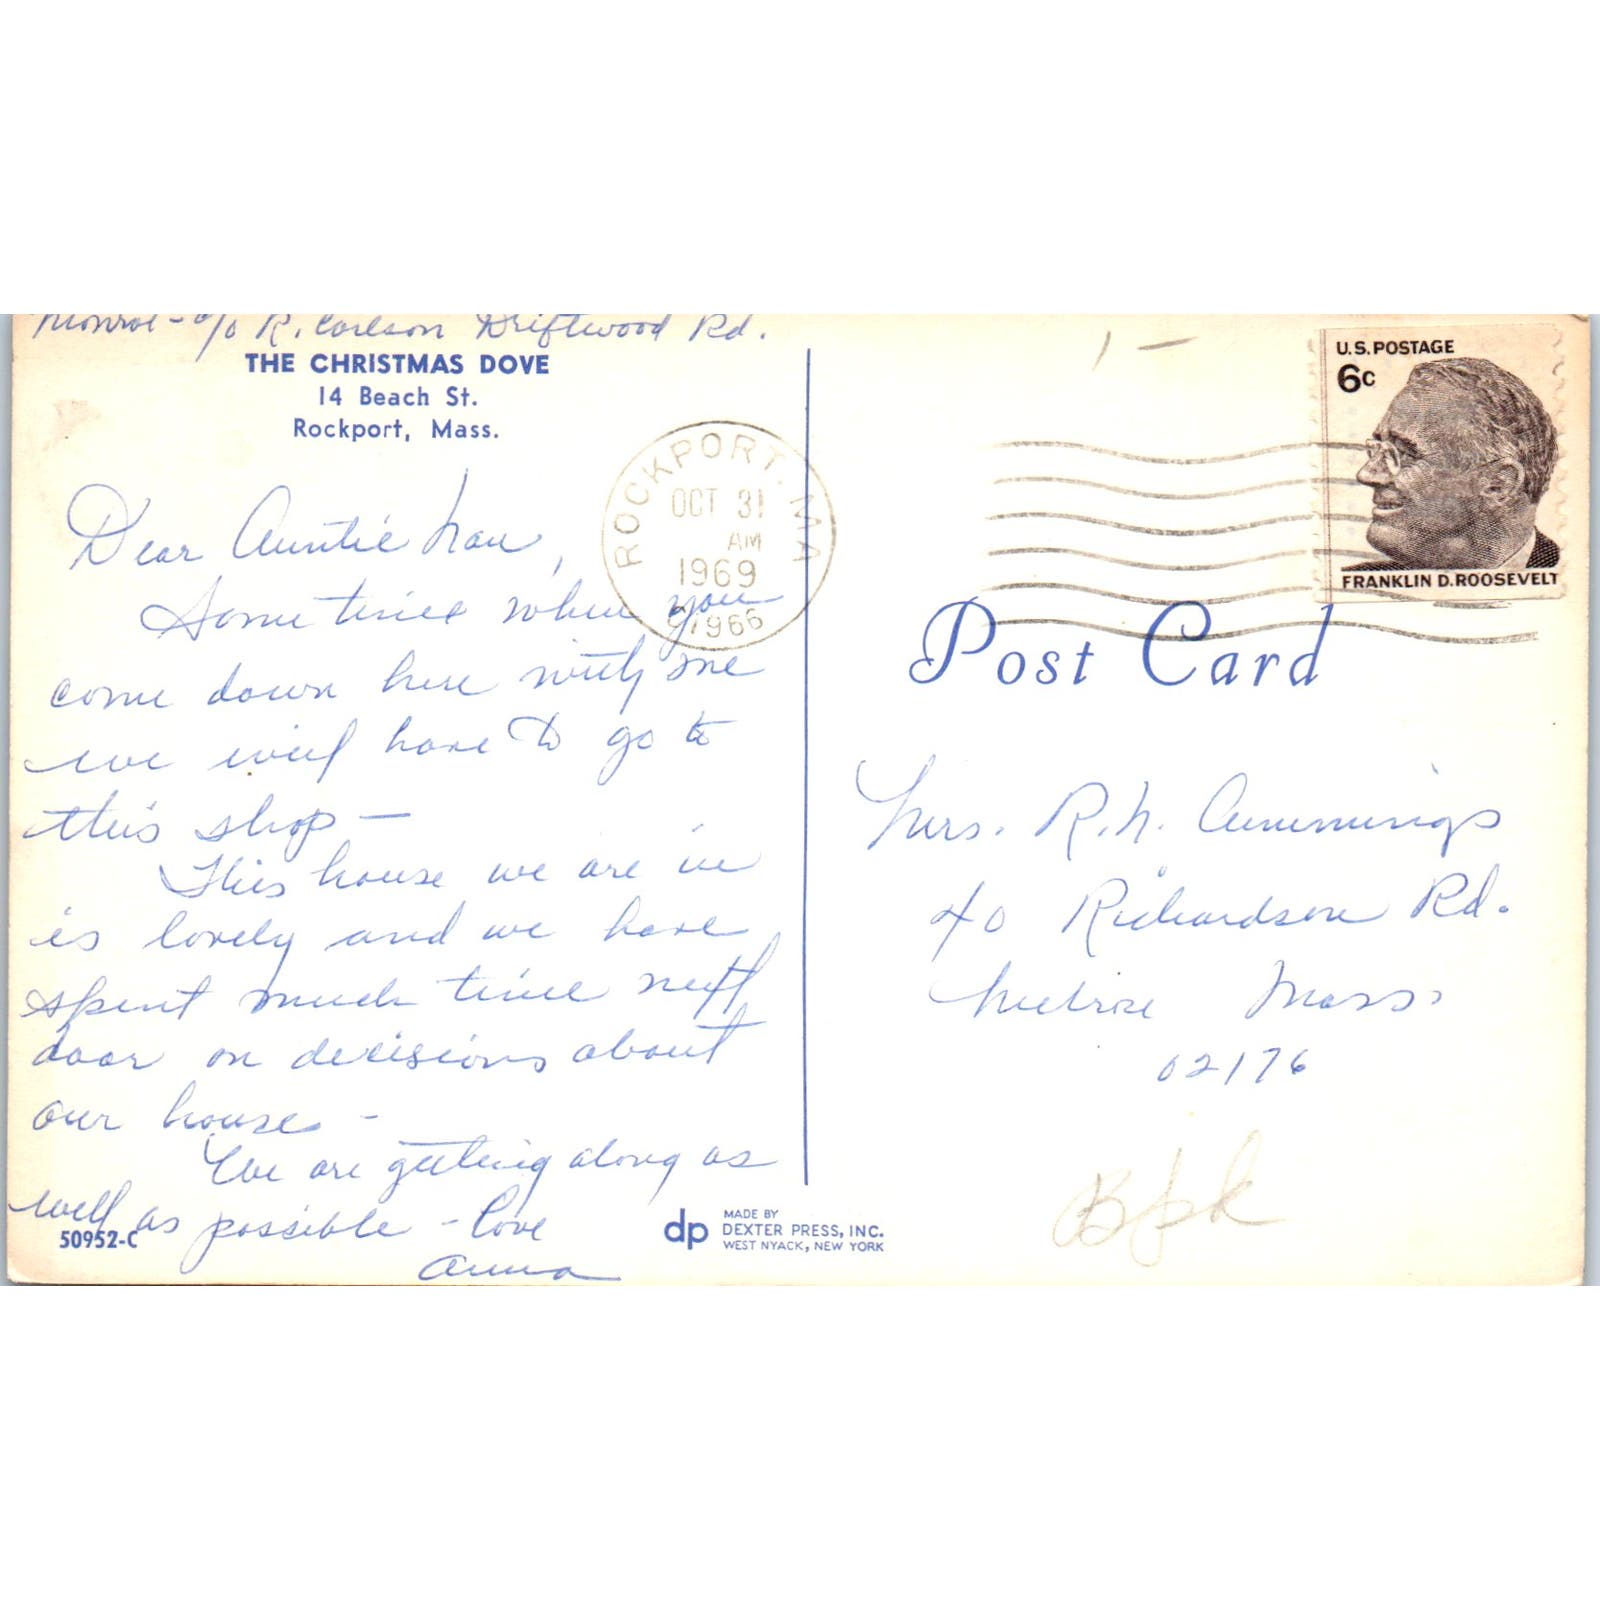 Monroe - c/o R. Carlson Driftwood Rd.
THE CHRISTMAS DOVE
14 Beach St.
Rockport, Mass.
Dear Auntie Nan,
Sometimes when you
come down here with me
we will have to go to
this shop —
This house we are in
is lovely and we have
spent much time next
door on decisions about
our house -
We are getting along as
well as possible - Love
Anna
50952-C
dp
MADE BY
DEXTER PRESS, INC.
WEST NYACK, NEW YORK
ROCKPORT, MA
OCT 31
AM
1969
01966
1 -
U.S. POSTAGE
6c
FRANKLIN D. ROOSEVELT
Post Card
Mrs. R. N. Cummings
40 Richardson Rd.
Melrose Mass.
02176